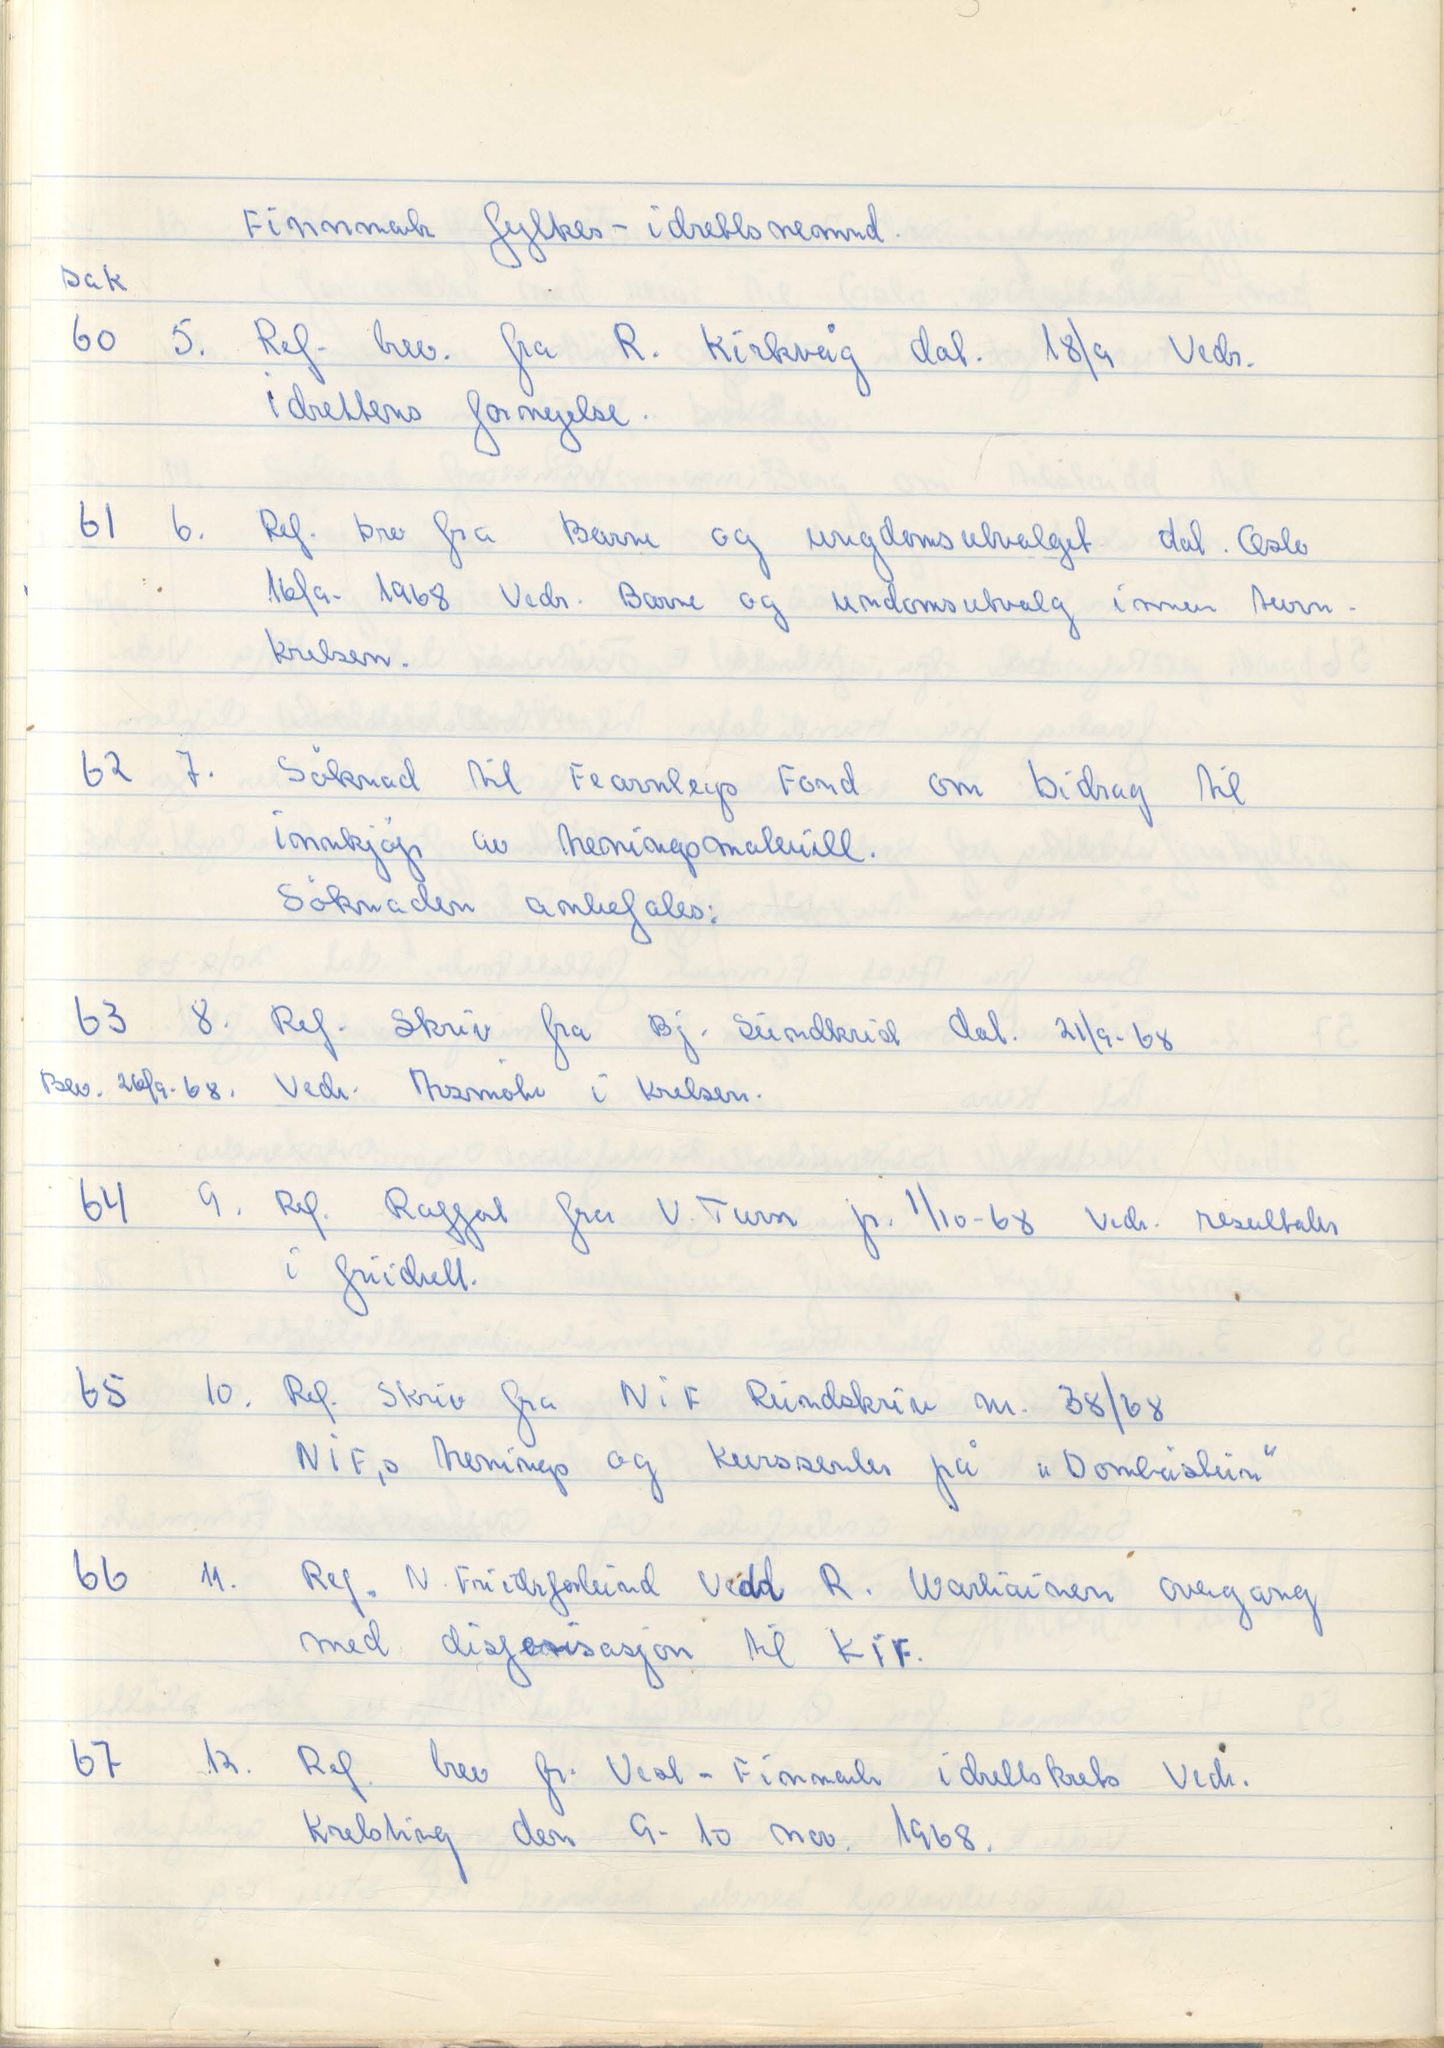 Finnmark fylkes-idrettsnemnd.
Sak
60 5. Ref. brev. fra R. Kirkvåg dat. 18/9 Vedr.
idrettens fornyelse.
61 6. Ref. brev fra Barne og ungdomsutvalget dat. Oslo
16/9-1968 Vedr. Barne og undomsutvalg innen turn-
kretsen.
62 7. Søknad til Fearnleys Fond om bidrag til
innkjøp av treningsmateriell.
Søknaden anbefales:
63 8. Ref. Skriv fra Bj. Sundkvist dat. 21/9-68
Bev. 26/9-68. Vedr. i kretsen.
64 9. Ref. Rapport fra V. Turn pr. 1/10-68 Vedr. resultater
i friidrett.
65 10. Ref. Skriv fra NIF Rundskriv nr. 38/68
NIF,s trenings og kurssenter på "Dombåstun"
66 11. Ref. N. Friidrforbund Vedr R. overgang
med dispensasjon til KIF.
67 12. Ref. brev fr. Vest-Finnmark idrettskrets Vedr.
Kretsting den 9-10 nov. 1968.